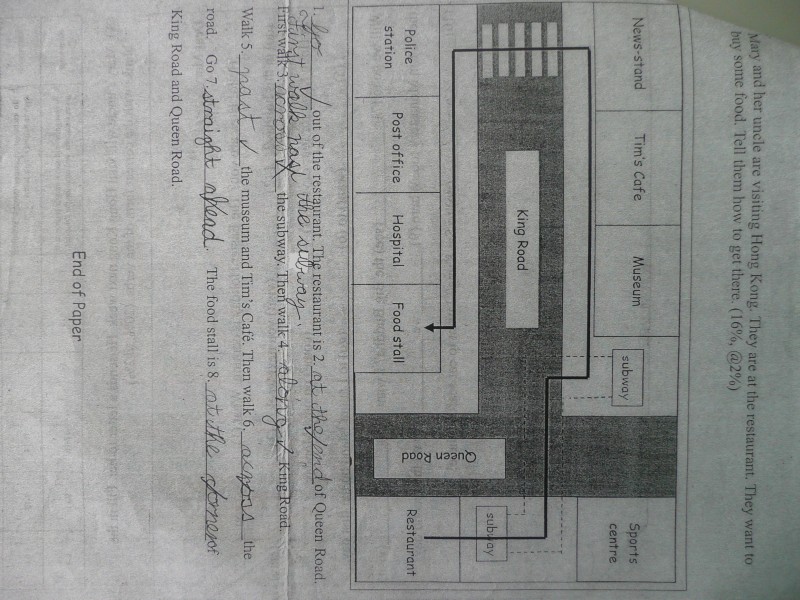 Mary and her uncle are visiting Hong Kong. They are at the restaurant. They want to
buy some food. Tell them how to get there. (16%, @2%)
News-stand
Tim's Cafe
Museum
subway
Sports
centre
King Road
Queen Road
subway
Police
station
Post office
Hospital
Food stall
Restaurant
1. Go out of the restaurant. The restaurant is 2. at the end of Queen Road.
first walk past the subway.
First walk 3. across the subway. Then walk 4. along King Road.
Walk 5. past the museum and Tim's Café. Then walk 6. across the
road. Go 7. straight ahead. The food stall is 8. at the corner of
King Road and Queen Road.
End of Paper